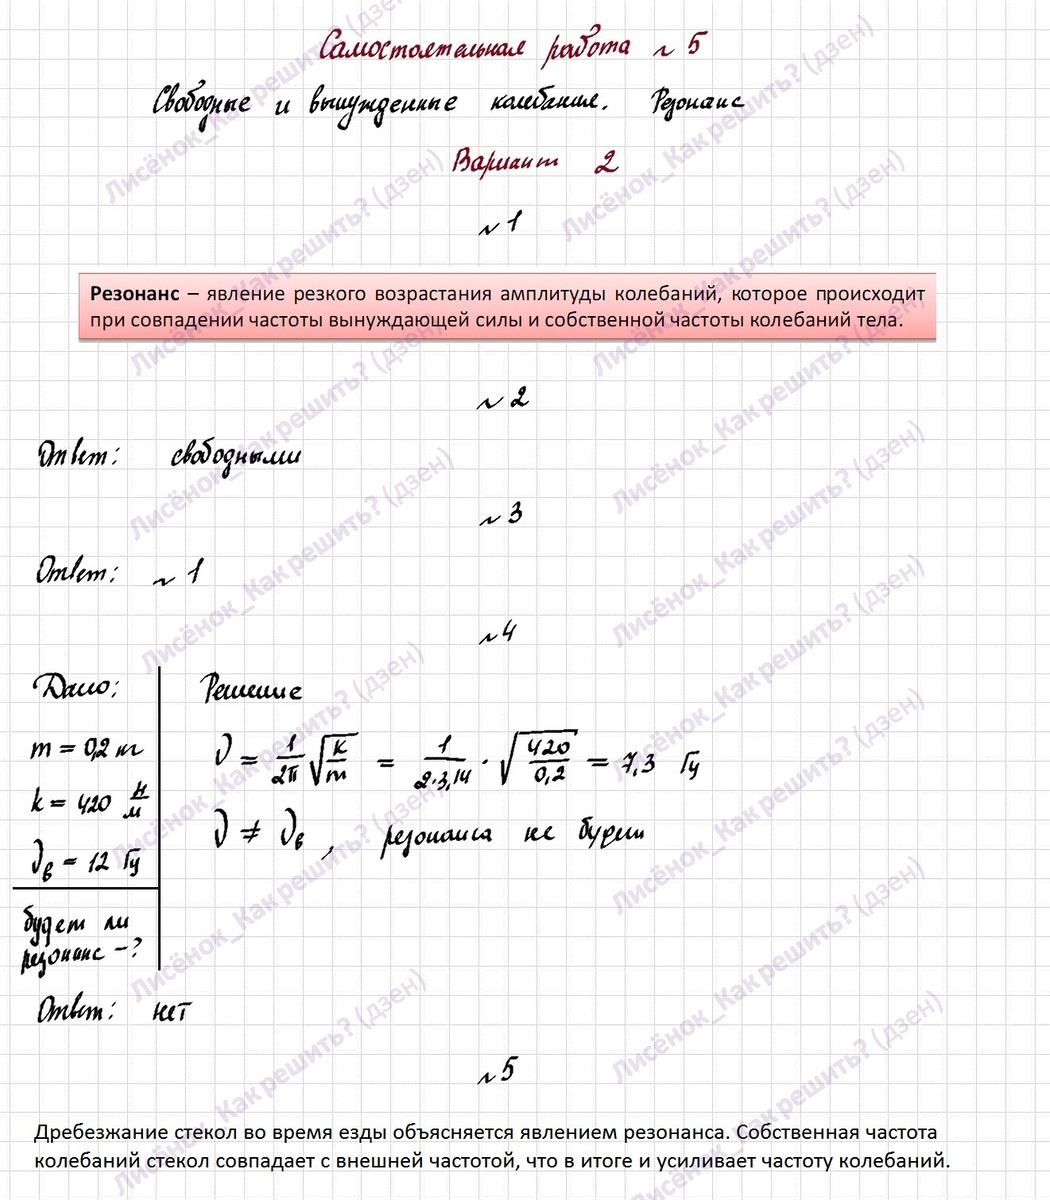 Самостоятельная работа № 5
Свободные и вынужденные колебания. Резонанс
Вариант 2
№ 1
Резонанс – явление резкого возрастания амплитуды колебаний, которое происходит
при совпадении частоты вынуждающей силы и собственной частоты колебаний тела.
№ 2
Ответ: свободными
№ 3
Ответ: № 1
№ 4
Дано:
m = 0,2 кг
k = 420 Н/м
νв = 12 Гц
будет ли
резонанс – ?
Решение
ν = 1/2π √k/m = 1/2·3,14 · √420/0,2 = 7,3 Гц
ν ≠ νв, резонанса не будет
Ответ: нет
№ 5
Дребезжание стекол во время езды объясняется явлением резонанса. Собственная частота
колебаний стекол совпадает с внешней частотой, что в итоге и усиливает частоту колебаний.
Лисёнок_Как решить? (дзен)